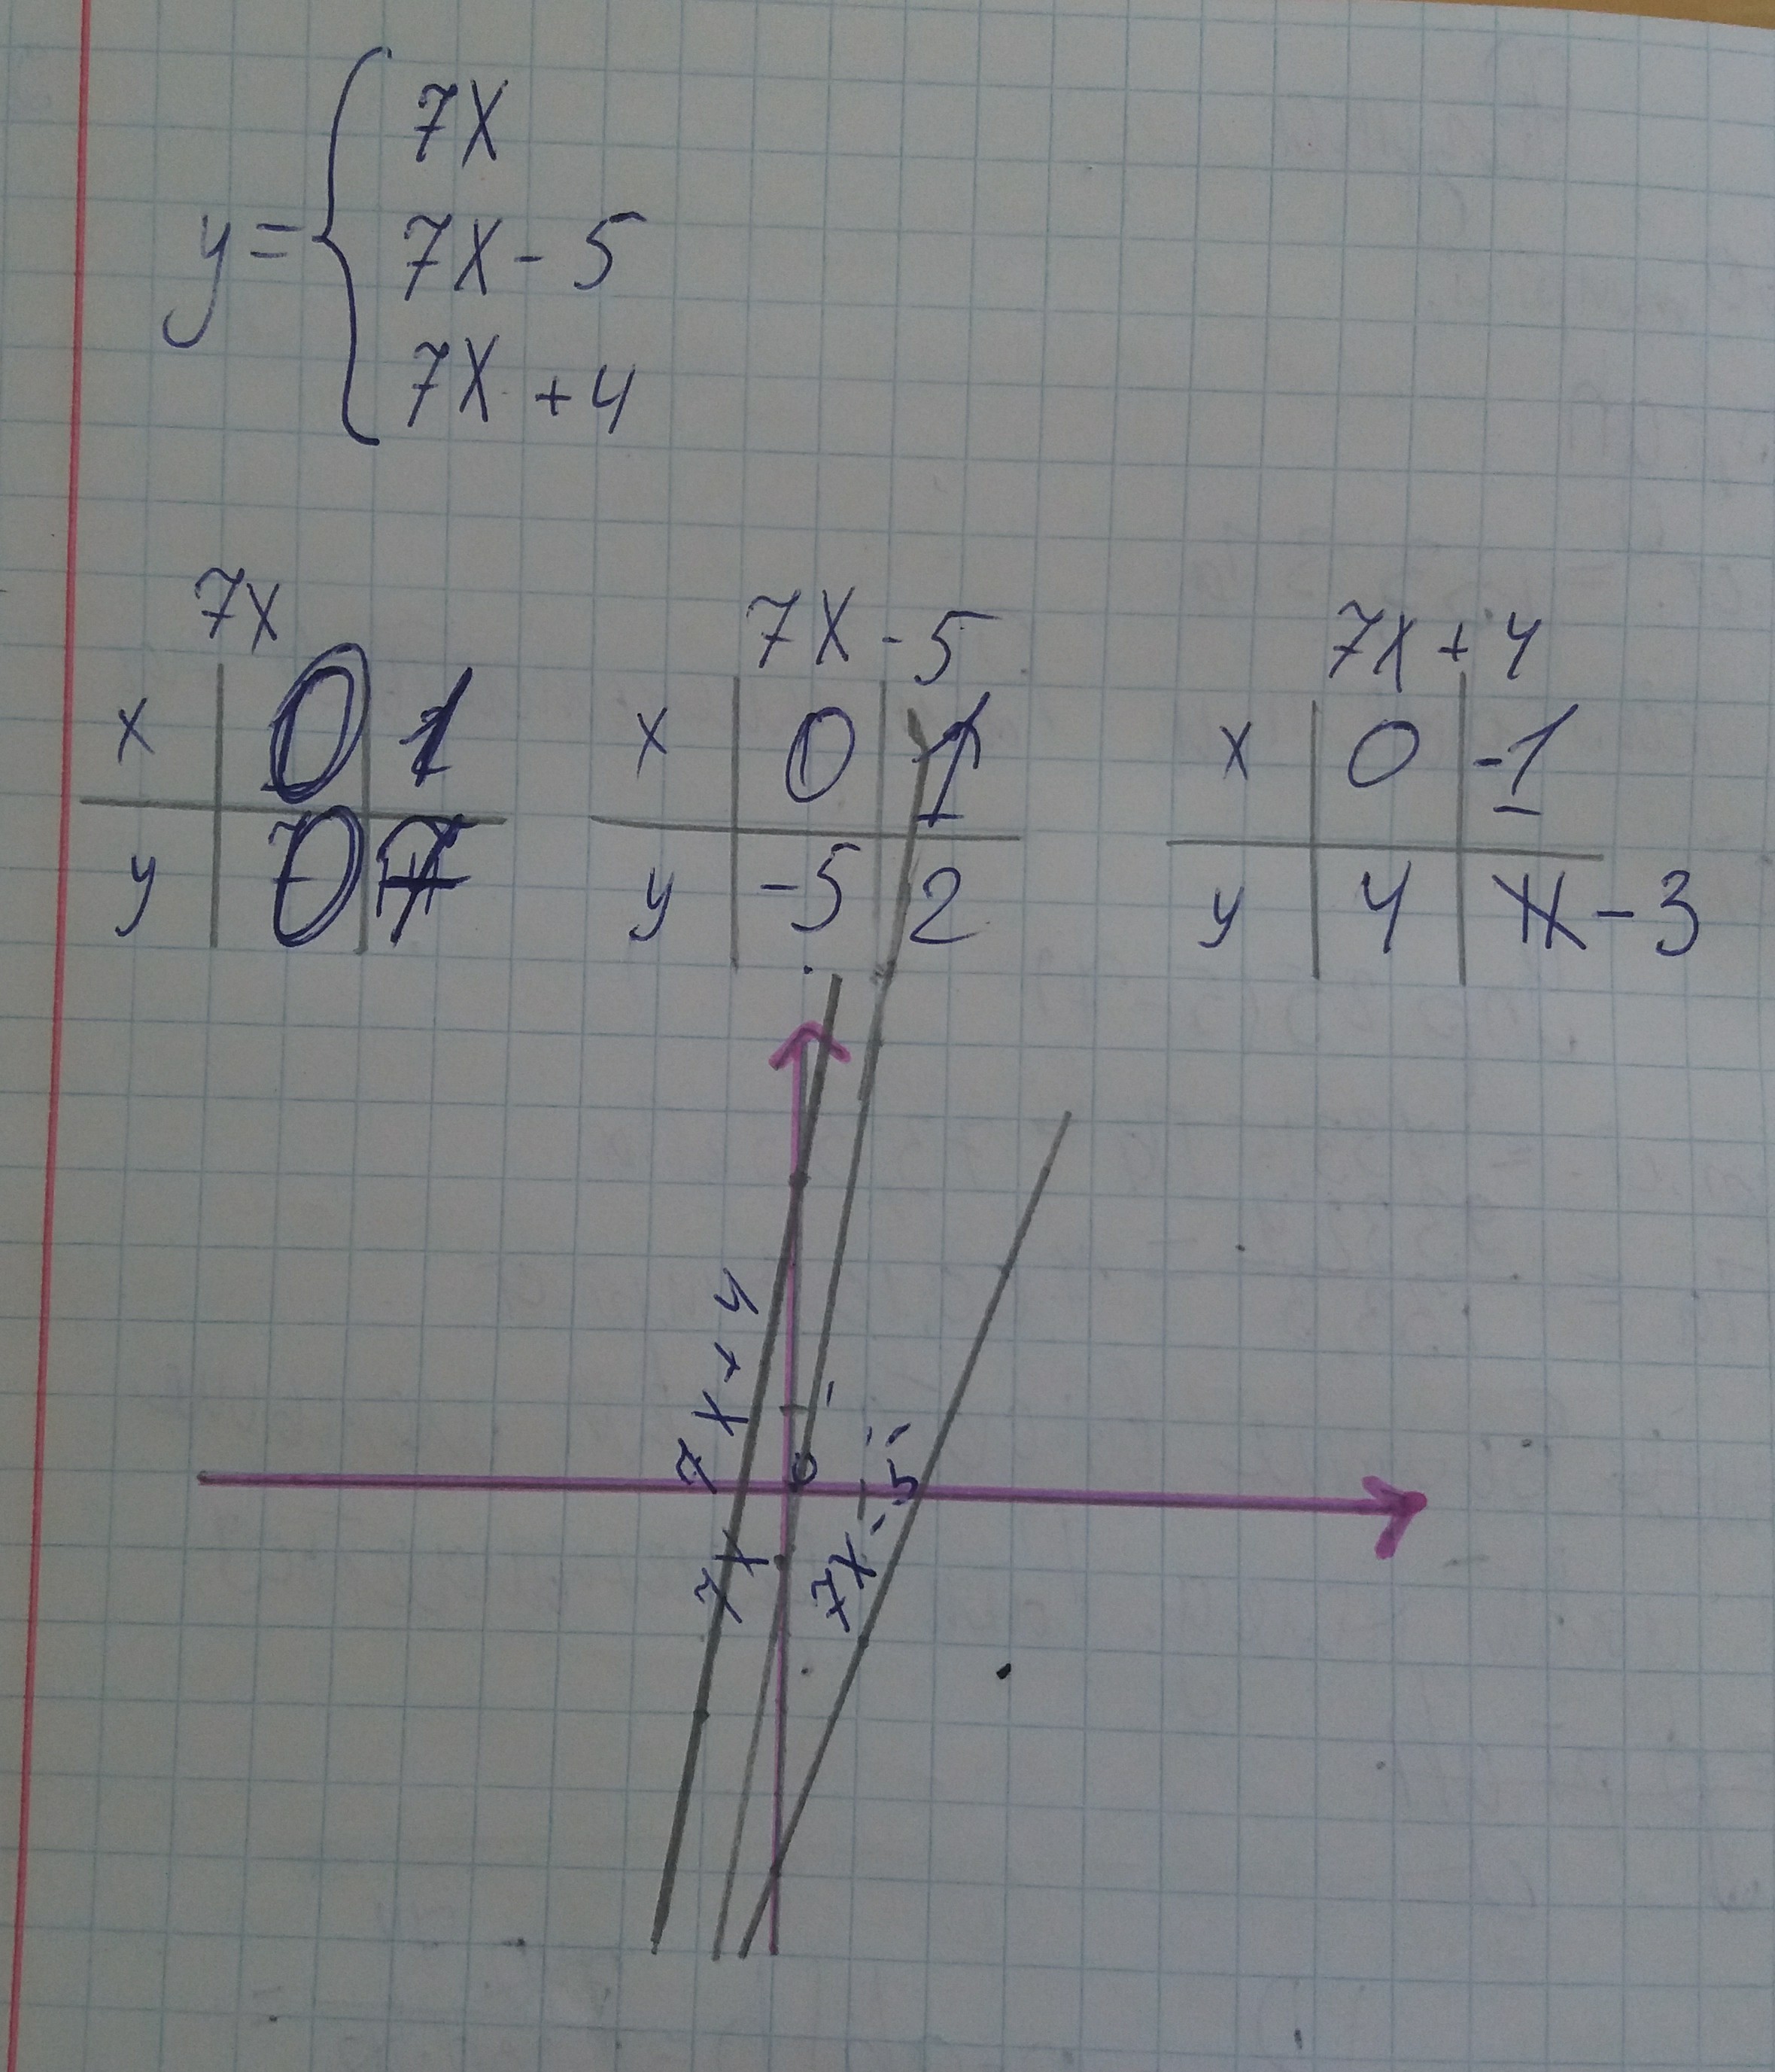 7x
y = { 7x - 5
7x + 4
7x 7x - 5 7x + 4
x 0 1 x 0 1 x 0 -1
y 0 7 y -5 2 y 4 -3
7x + 4
0
7x
7x - 5